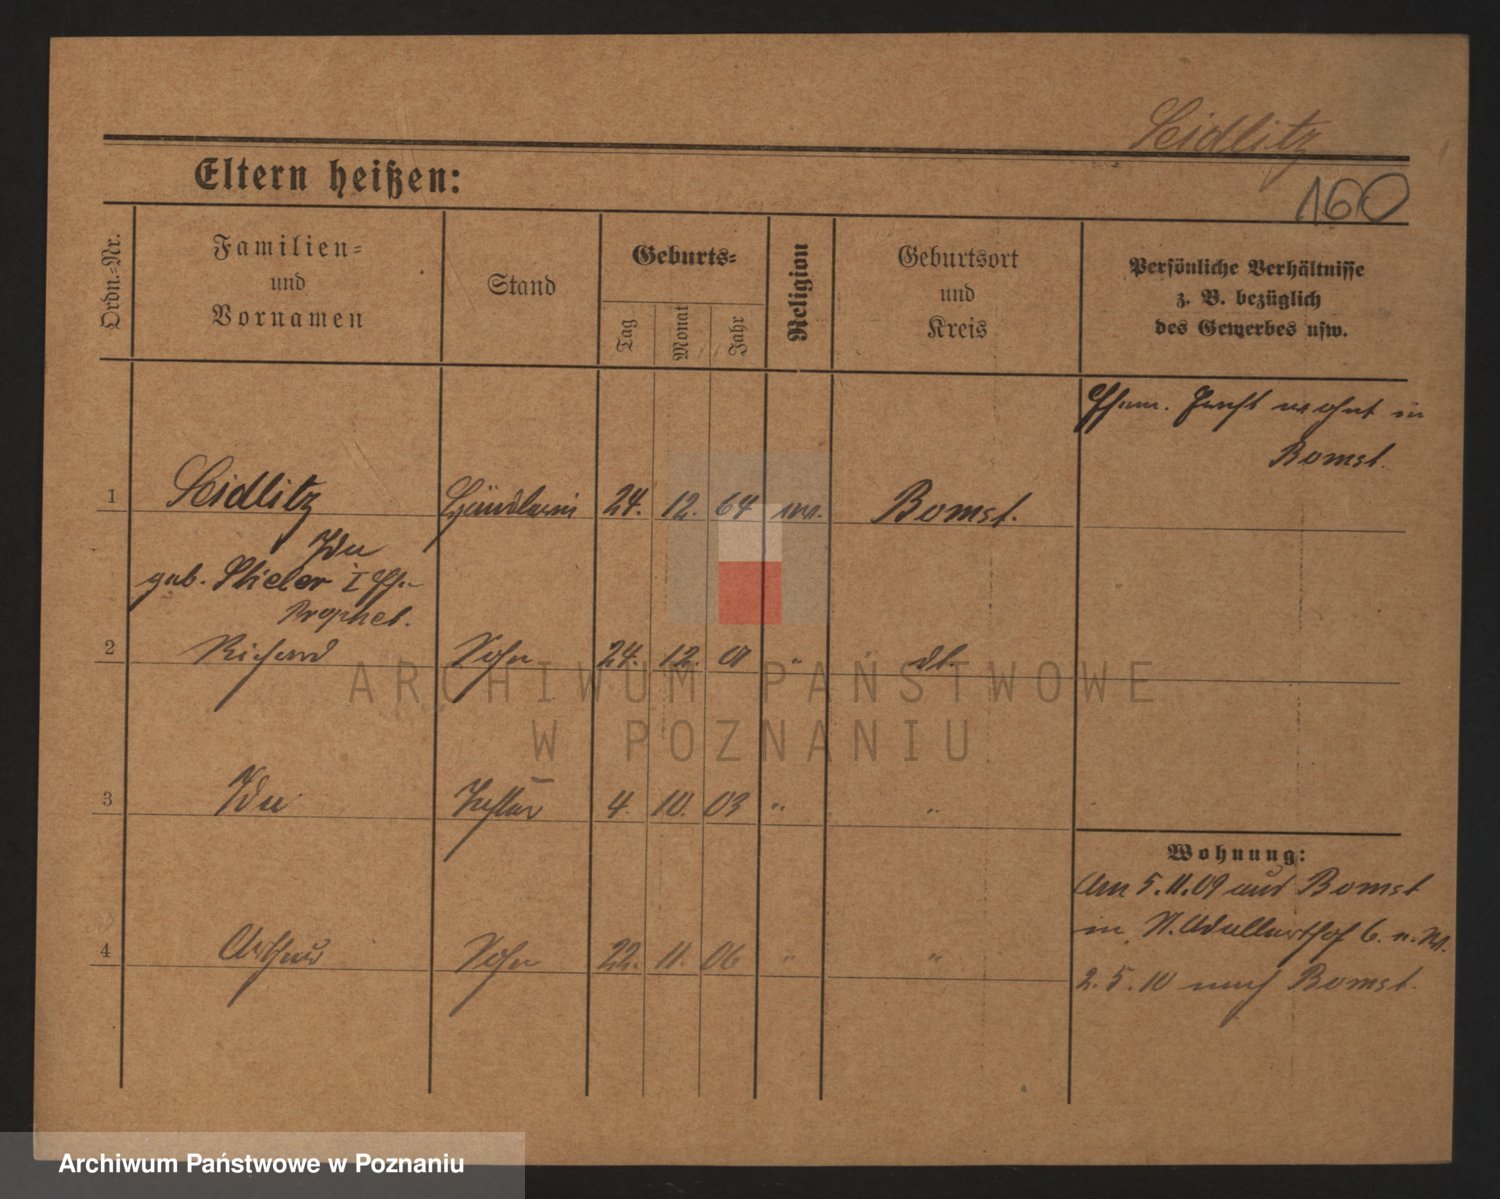 Seidlitz
Eltern heißen:
160
Ordn.-Nr.
Familien-
und
Vornamen
Stand
Geburts-
Tag
Monat
Jahr
Religion
Geburtsort
und
Kreis
Persönliche Verhältnisse
z. B. bezüglich
des Gewerbes usw.
wohnt in
Bomst.
1 Seidlitz Händlerin 24. 12. 64 ev. Bomst.
Ida
geb. Stieler I Eh.
Prophet.
2 Richard Sohn 24. 12. 01 " dt.
ARCHIWUM PAŃSTWOWE
W POZNANIU
3 Ida Tochter 4. 10. 03 " "
Wohnung:
Am 5.11.09 aus Bomst
in 6. n. W.
4 Arthur Sohn 22. 11. 06 " "
2.5.10 nach Bomst.
Archiwum Państwowe w Poznaniu